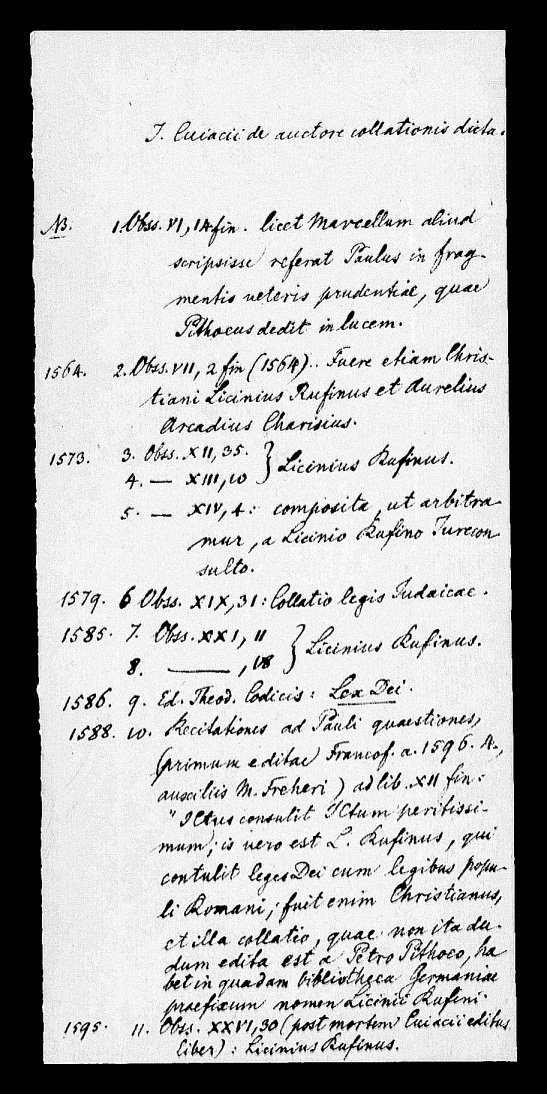 J. Cuiacii de auctore collationis dicta.
NB. 1. Obss. VI, 14 fin. licet Marcellum aliud
scripsisse referat Paulus in frag-
mentis veteris prudentiae, quae
Pithoeus dedit in lucem.
1564. 2. Obss. VII, 2 fin (1564).. Fuere etiam Chris-
tiani Licinius Rufinus et Aurelius
Arcadius Charisius.
1573. 3. Obss. XII, 35. } Licinius Rufinus.
4. — XIII, 10
5. — XIV, 4: composita, ut arbitra-
mur, a Licinio Rufino Jurecon-
sulto.
1579. 6 Obss. XIX, 31: Collatio legis Judaicae.
1585. 7. Obss. XXI, 11 } Licinius Rufinus.
8. ——, 18
1586. 9. Ed. Theod. Codicis: Lex Dei.
1588. 10. Recitationes ad Pauli quaestiones,
(primum editae Francof. a. 1596. 4.,
auxiliis M. Freheri) ad lib. XII fin:
"ICtus consulit ICtum peritissi-
mum; is vero est L. Rufinus, qui
contulit leges Dei cum legibus popu-
li Romani; fuit enim Christianus,
et illa collatio, quae non ita du-
dum edita est a Petro Pithoeo, ha
bet in quadam bibliotheca Germaniae
praefixum nomen Licinii Rufini.
1595. 11. Obss. XXVI, 30 (post mortem Cuiacii editus
liber): Licinius Rufinus.